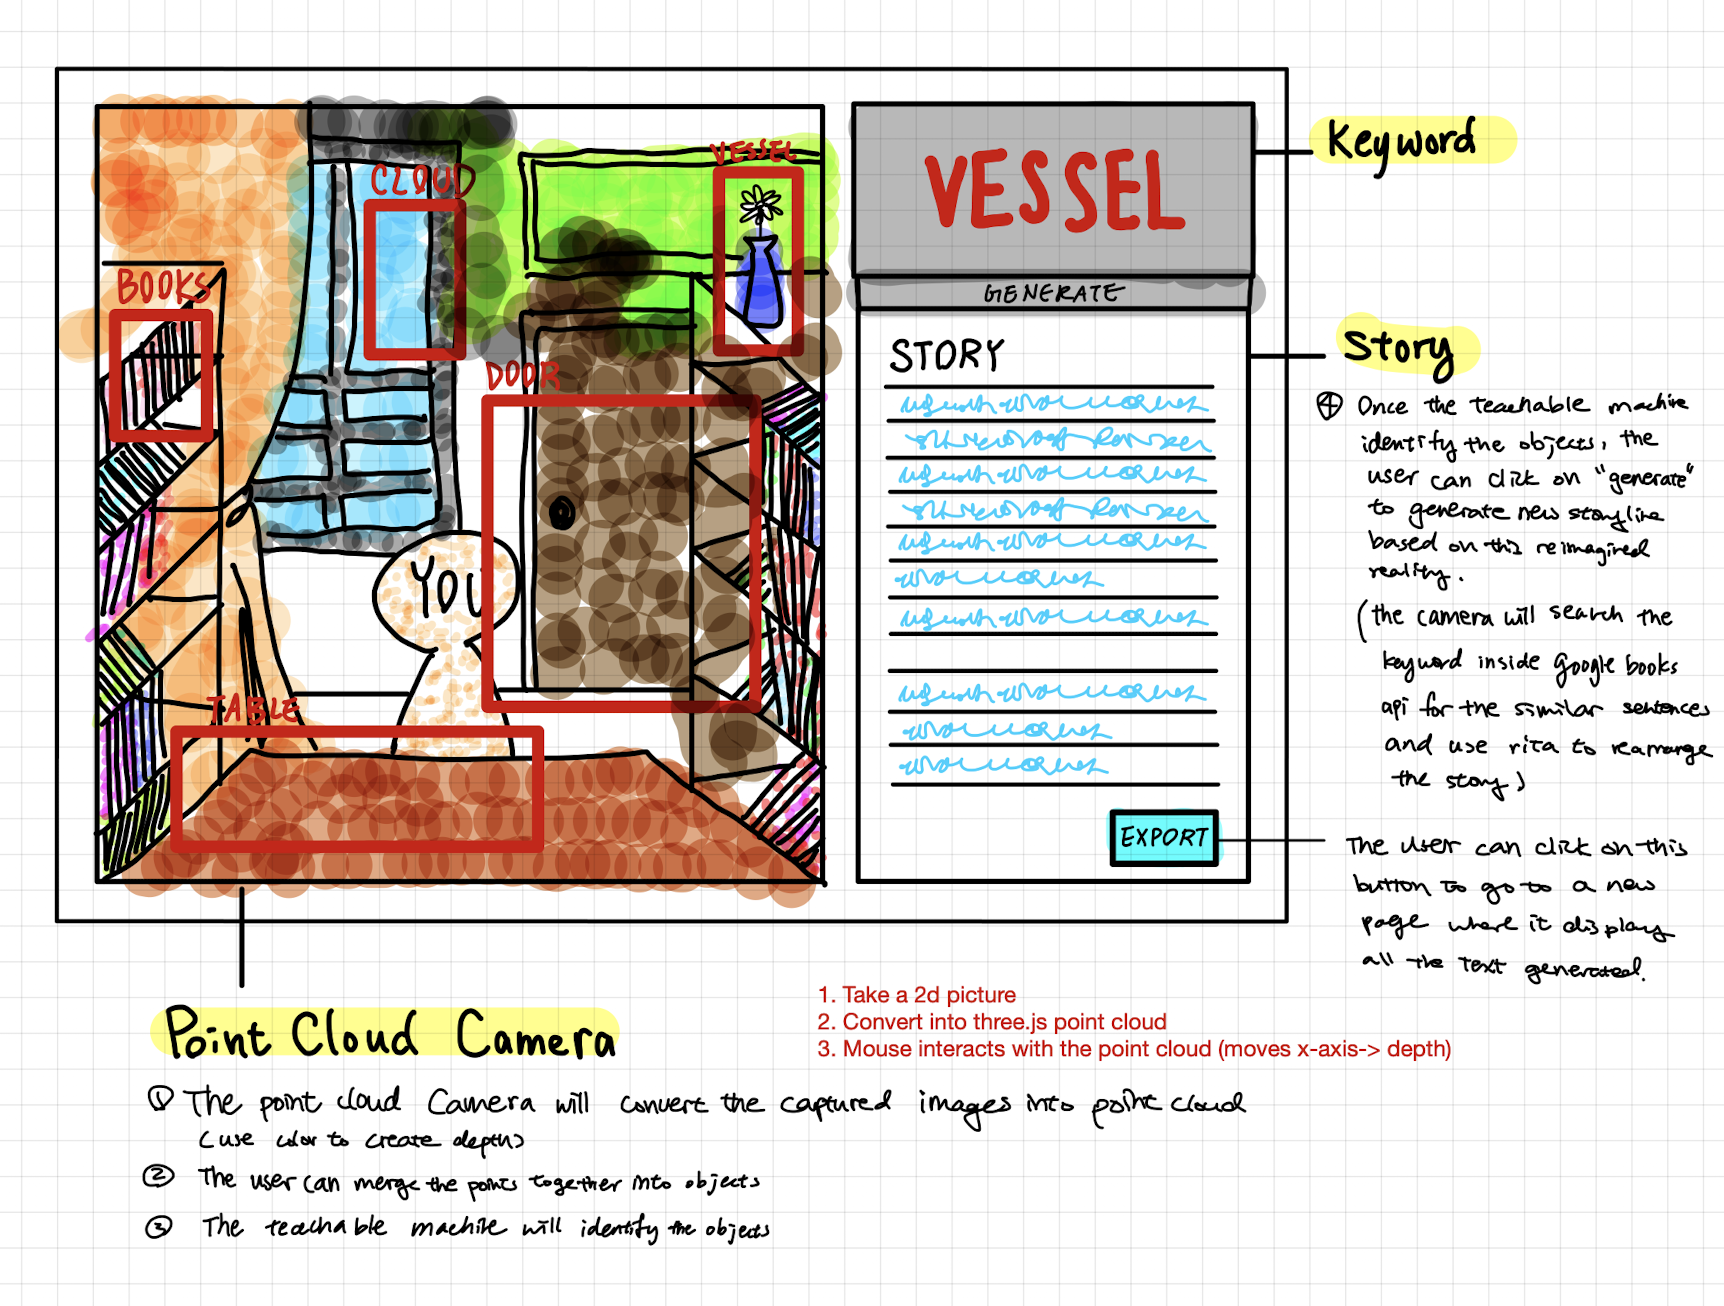 CLOUD
VESSEL
BOOKS
DOOR
YOU
TABLE
VESSEL
GENERATE
STORY
EXPORT
Keyword
Story
④ Once the teachable machine
identify the objects, the
user can click on "generate"
to generate new storyline
based on this reimagined
reality.
(the camera will search the
keyword inside google books
api for the similar sentences
and use rita to rearrange
the story)
The user can click on this
button to go to a new
page where it display
all the text generated.
Point Cloud Camera
1. Take a 2d picture
2. Convert into three.js point cloud
3. Mouse interacts with the point cloud (moves x-axis-> depth)
① The point cloud Camera will convert the captured images into point cloud
(use color to create depth)
② The user can merge the points together into objects
③ The teachable machine will identify the objects